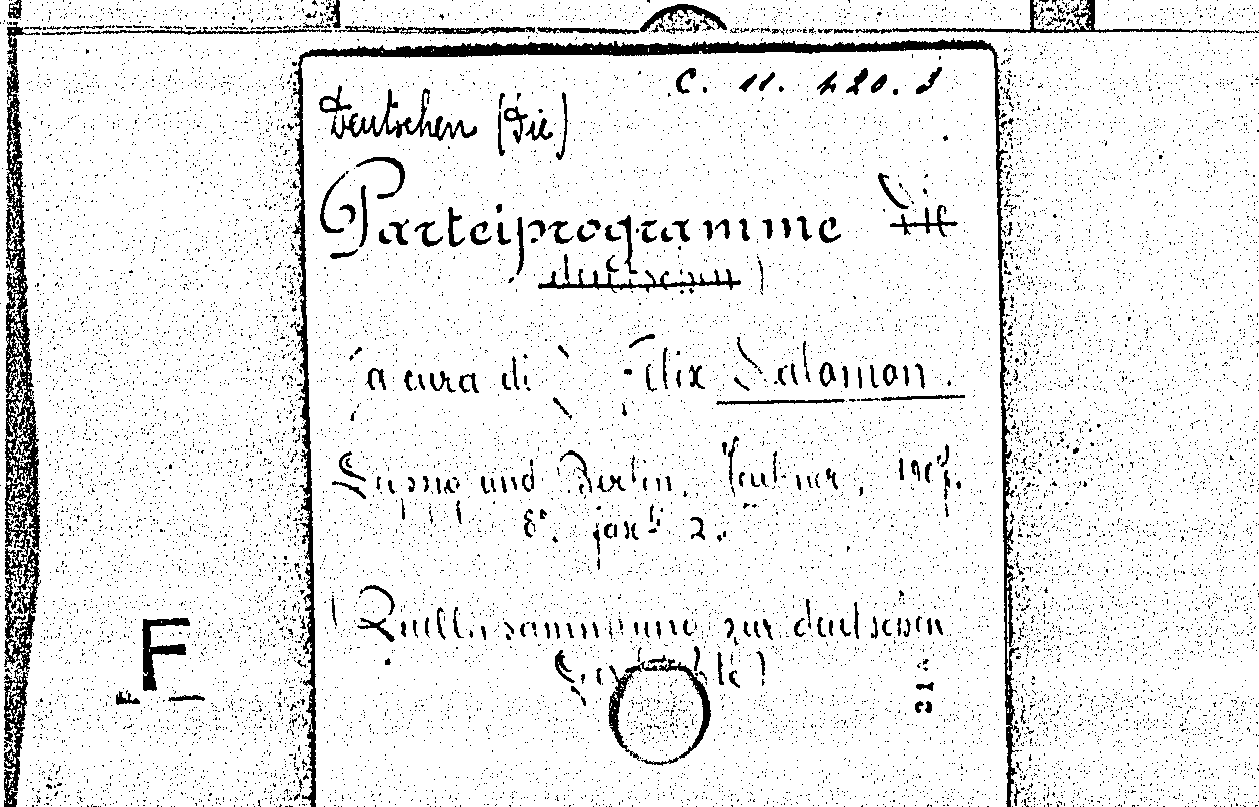 C. 11. 420. 3
Deutschen (Die)
Parteiprogramme Die
deutschen)
(a cura di) Felix Salomon.
Leipzig und Berlin, Teubner, 1907.
8°. fasc<sup>li</sup> 2.
(Quellensammlung zur deutschen
Geschichte)
F